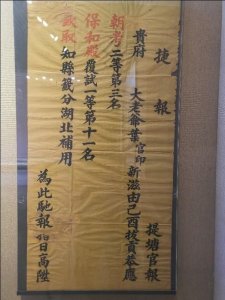 捷報
貴府大老爺葉官印新滋由己酉拔貢恭應
朝考二等第三名
保和殿覆試一等第十一名
欽取知縣籤分湖北補用
為此馳報指日高陞
提塘官報